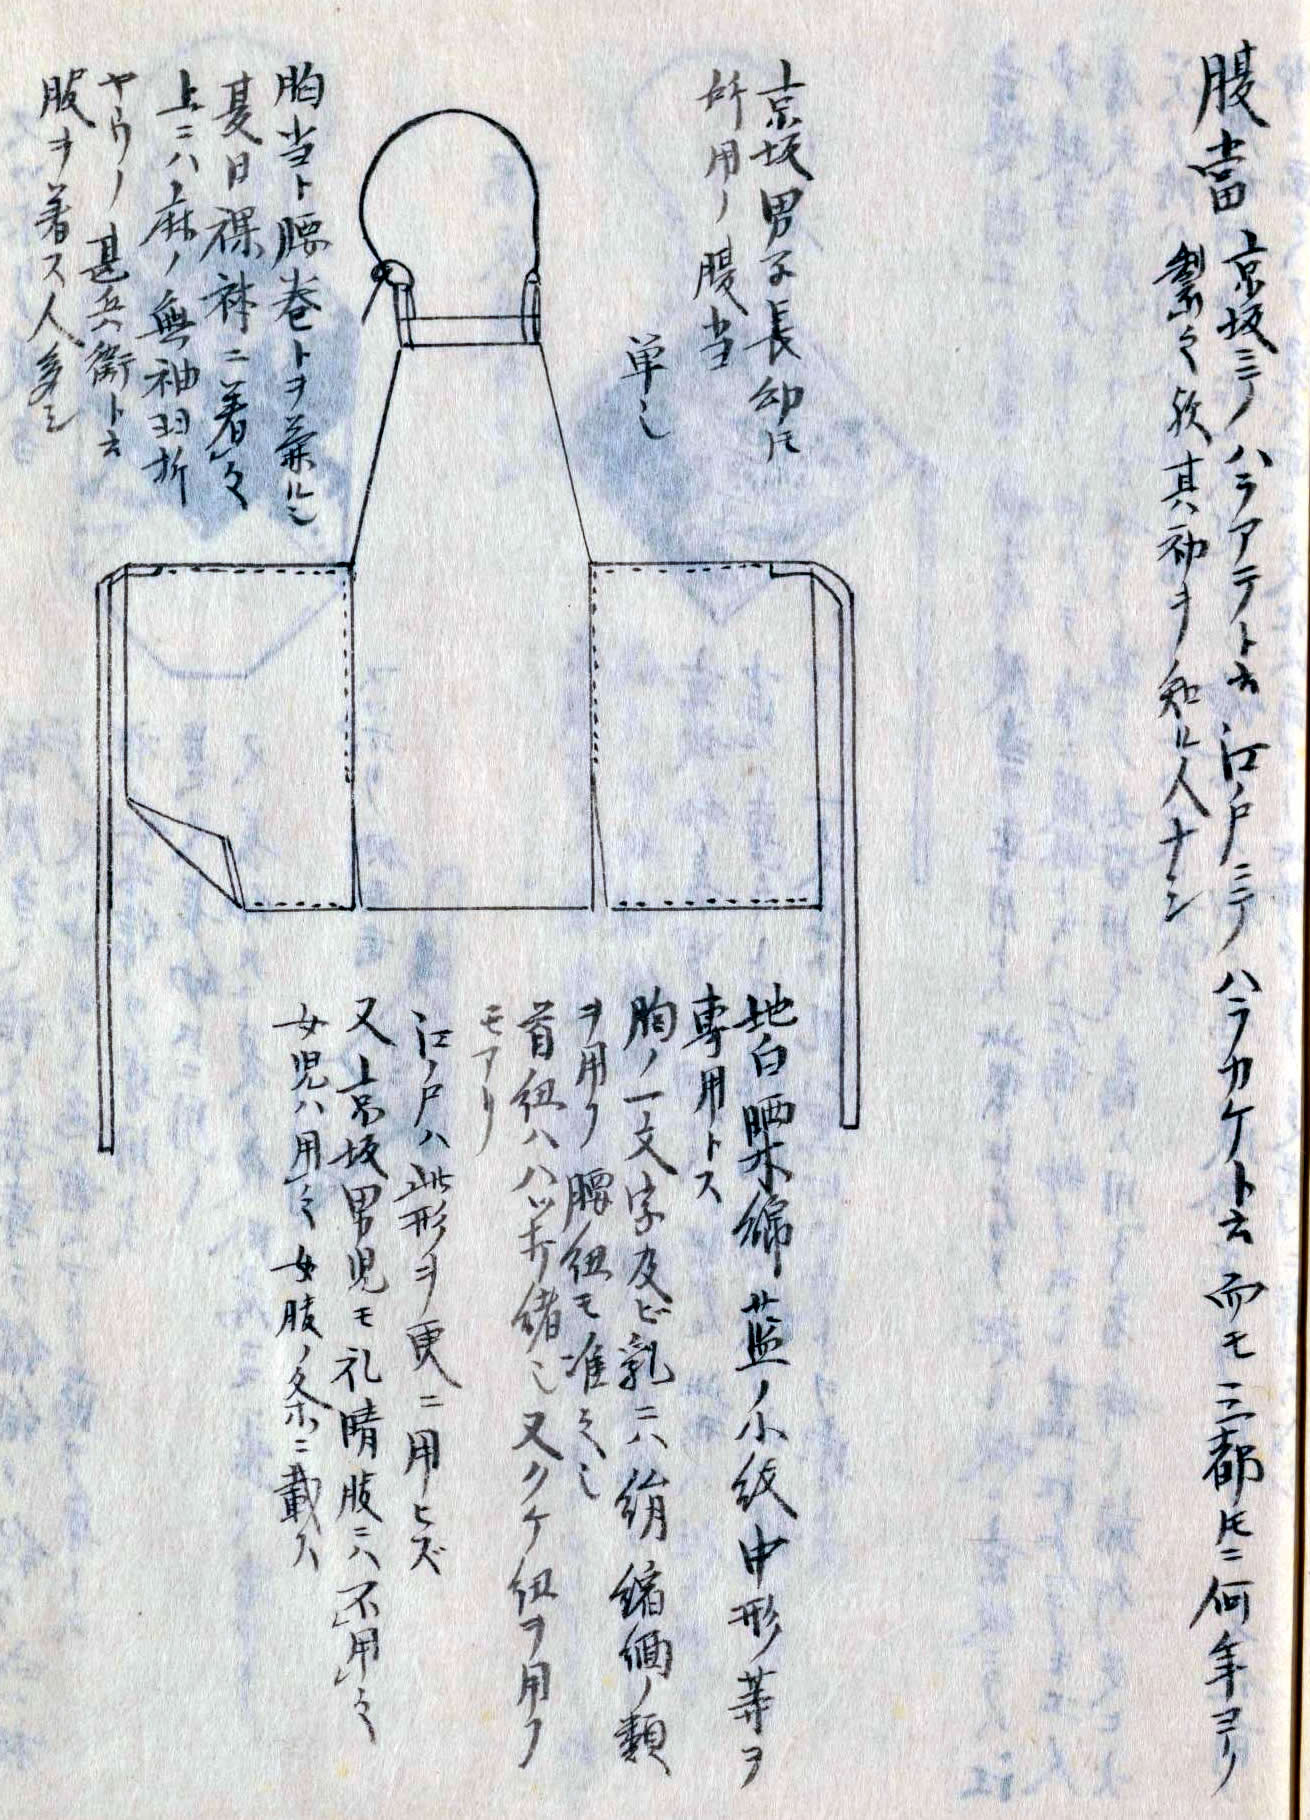 腹當 京坂ニテハラアテト云 江戸ニテハラカケト云 而モ三都トモニ何年ヨリ
製之歟其初ヲ知ル人ナシ
京坂男子長幼トモ
所用ノ腹当
単也
胸当ト腰巻トヲ兼ル也
夏日裸体ニ着之
上ニハ麻ノ無袖羽折
ヤウノ甚兵衛ト云
服ヲ着ス人多シ
地白晒木綿藍ノ小紋中形等ヲ
専用トス
胸ノ一文字及ビ乳ニハ絹縮緬ノ類
ヲ用フ腰紐モ准之也
首紐ハ八ツ打緒也又クケ紐ヲ用フ
モアリ
江戸ハ此形ヲ更ニ用ヒズ
又京坂男児モ礼晴服ニハ不用之
女児ハ用之女服ノ条ニ載ス